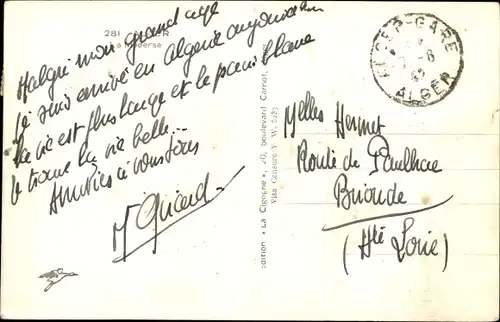 281
Malgré mon grand age
je suis arrivé en Algérie aujourd'hui
la vie est plus large et le pain blanc
je trouve la vie belle...
Amitiés à vous tous
M Girard
"La Cigogne", 20, boulevard Carnot,
Visa Censure Y. W.
ALGER-GARE
ALGER
Melles Hermet
Route de Paulhac
Brioude
(Hte Loire)